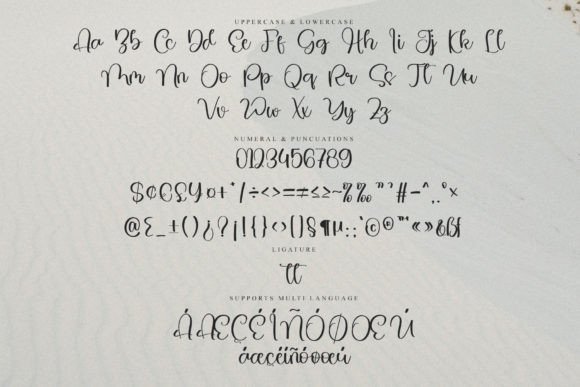 UPPERCASE & LOWERCASE
Aa Bb Cc Dd Ee Ff Gg Hh Ii Jj Kk Ll
Mm Nn Oo Pp Qq Rr Ss Tt Uu
Vv Ww Xx Yy Zz
NUMERAL & PUNCUATIONS
0123456789
$¢€£¥¤+*/÷<>=≠≤≥~%‰"'#-^,.°×
@&_±()¿?¡!{}<>[]§¶µ:;'©®™"«»
LIGATURE
tt
SUPPORTS MULTI LANGUAGE
ÁÆÇÉÍÑÓØŒÚ
áæçéíñóøœú